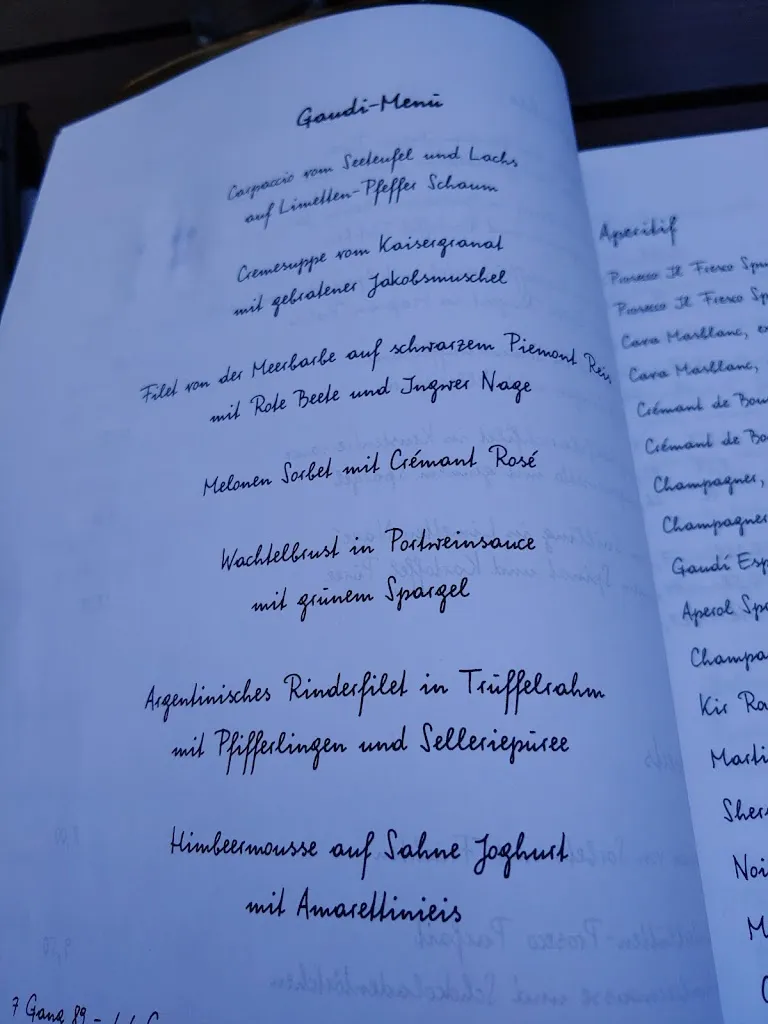 Gaudi-Menü
Carpaccio vom Seeteufel und Lachs
auf Limetten-Pfeffer Schaum
Cremesuppe vom Kaisergranat
mit gebratener Jakobsmuschel
Filet von der Meerbarbe auf schwarzem Piemont Reis
mit Rote Beete und Ingwer Nage
Melonen Sorbet mit Crémant Rosé
Wachtelbrust in Portweinsauce
mit grünem Spargel
Argentinisches Rinderfilet in Trüffelrahm
mit Pfifferlingen und Selleriepüree
Himbeermousse auf Sahne Joghurt
mit Amarettinieis
7 Gang 89 -
Aperitif
Prosecco Il Fresco
Prosecco Il Fresco
Cava Masblanc,
Cava Masblanc,
Crémant de
Crémant de
Champagner,
Champagner
Gaudí
Aperol
Kir